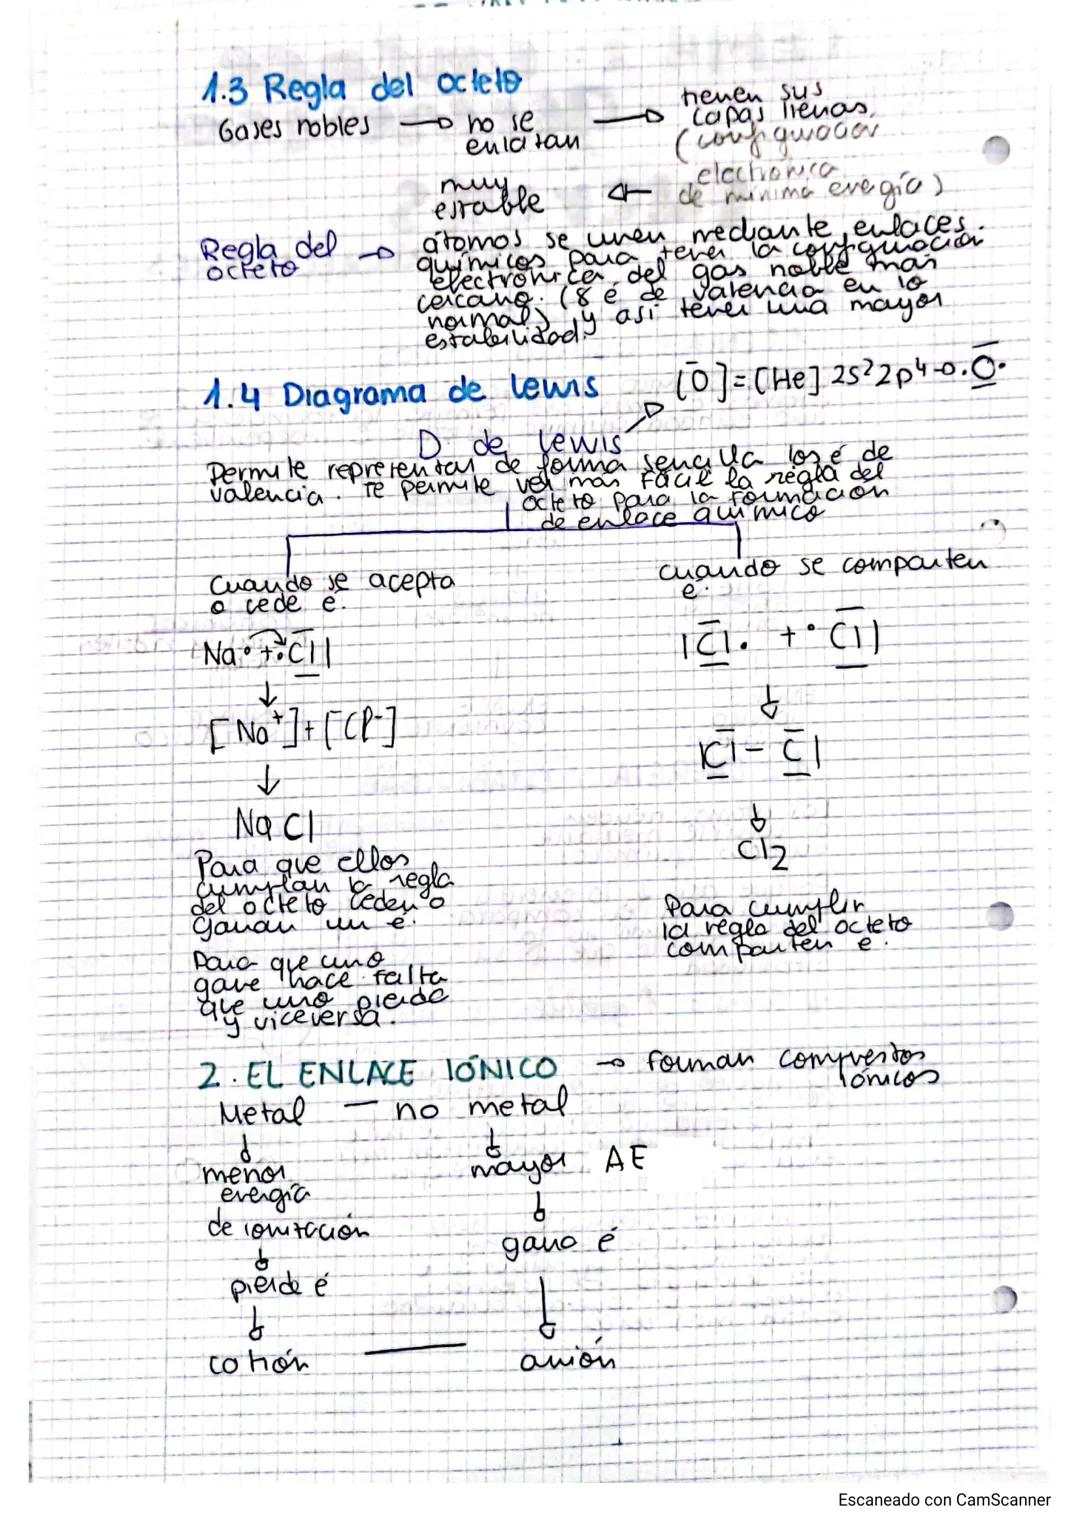 1.3 Regla del octeto
Gases nobles → no se enlazan → tienen sus capas llenas.
(configuración electrónica de mínima energía)
muy estable ←
Regla del octeto → átomos se unen mediante enlaces
químicos para tener la configuración
electrónica del gas noble más
cercano. (8 é de valencia en lo
normal) y así tener una mayor
estabilidad.
1.4 Diagrama de Lewis
[O] = [He] 2s² 2p⁴ → ·O·
D. de Lewis
Permite representar de forma sencilla los é de
valencia. Te permite ver más fácil la regla del
octeto para la formación
de enlace químico
Cuando se acepta
o cede é.
Na· + ·Cl|
↓
[Na⁺] + [Cl⁻]
↓
NaCl
Para que ellos
cumplan la regla
del octeto ceden o
ganan un é.
Para que uno
gane hace falta
que uno pierda
y viceversa.
cuando se comparten
é.
|Cl· + ·Cl|
↓
|Cl - Cl|
↓
Cl2
Para cumplir
la regla del octeto
comparten é.
2. EL ENLACE IÓNICO → forman compuestos
iónicos
Metal — no metal
↓
menor
energía
de ionización
↓
pierde é
↓
catión
↓
mayor AE
↓
gana é
↓
anión
Escaneado con CamScanner